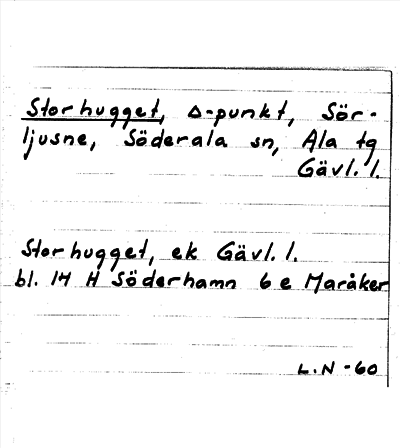 Storhugget, Δ-punkt, Sör-
ljusne, Söderala sn, Ala tg
Gävl. l.
Storhugget, ek Gävl. l.
bl. 14 H Söderhamn 6 e Maråker
L.N -60